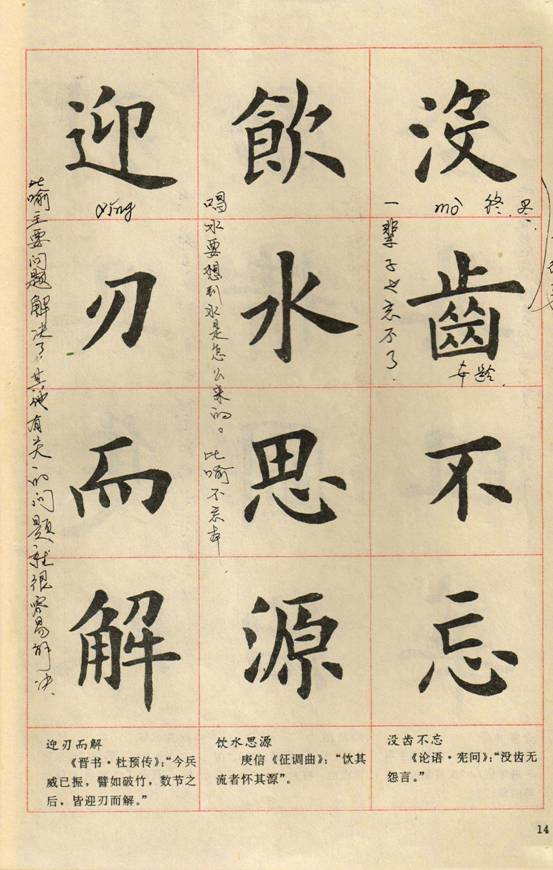 没齒不忘
mò 终.
一辈子也忘不了.
飲水思源
喝水要想到水是怎么来的。比喻不忘本.
迎刃而解
ying
比喻主要问题解决了,其他有关的问题就很容易解决.
没齿不忘
《论语·宪问》:“没齿无
怨言。”
饮水思源
庾信《征调曲》:“饮其
流者怀其源”。
迎刃而解
《晋书·杜预传》:“今兵
威已振,譬如破竹,数节之
后,皆迎刃而解。”
14